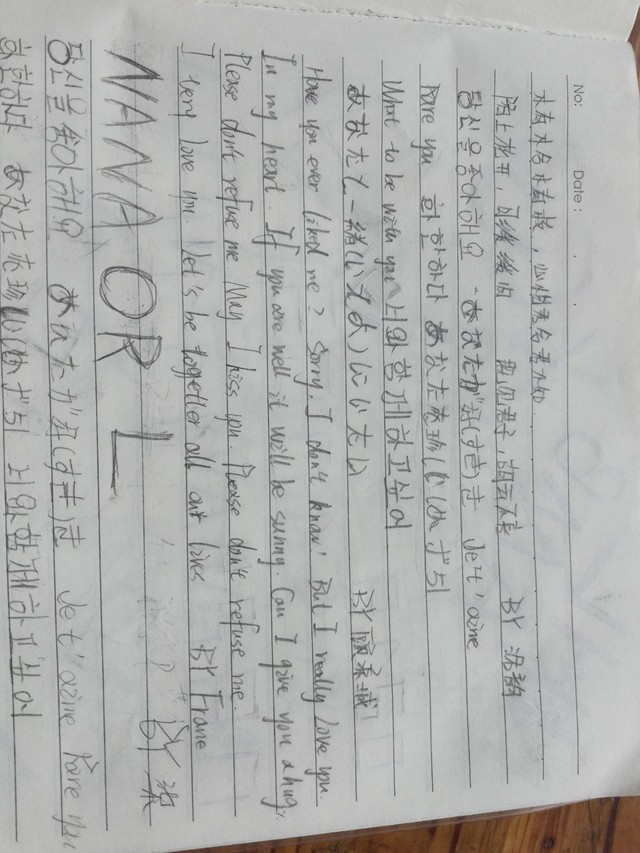 No: Date:
木有木兮木有枝，心悦君兮君不知
陌上花开，可缓缓归 既见君子，胡云不喜 BY
당신을 좋아해요 - あなたが好(す き)き Je t'aime
Fare you 환한하다 あなた
What to be with you 너와 함게하고싶어
あなたと一緒(いっしょ)にいたい BY
Have you ever liked me? Sorry, I don't know! But I really love you.
In my heart. If you are well it will be sunny. Can I give you a hug,
Please don't refuse me May I kiss you. Please don't refuse me.
I very love you. Let's be together all out lives BY Frane
NANA OR L BY
당신을 좋아해요 あなたが好(すき)き Je t'aime Fare you
환한하다 あなた 너와함게하고싶어